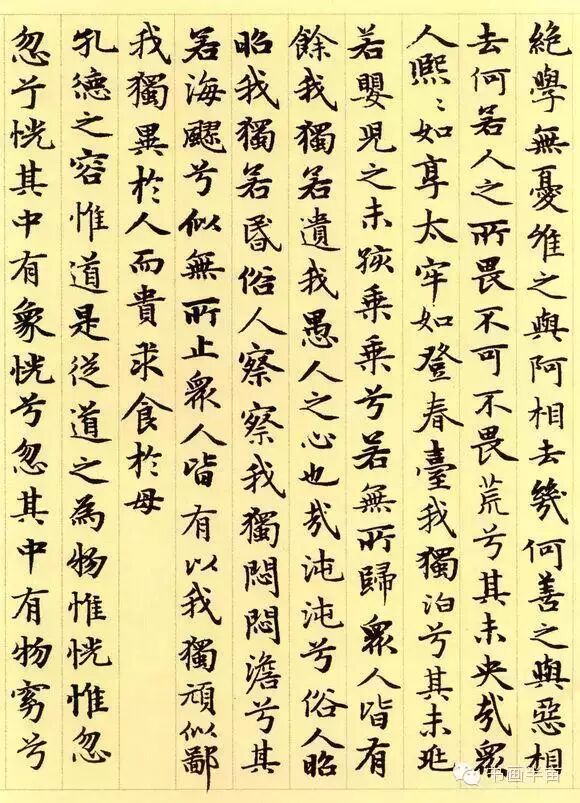 絕學無憂維之與阿相去幾何善之與惡相
去何若人之所畏不可不畏荒兮其未央哉眾
人熙〻如享太牢如登春臺我獨泊兮其未兆
若嬰児之未孩乗乗兮若無所歸眾人皆有
餘我獨若遺我愚人之心也哉沌沌兮俗人昭
昭我獨若昏俗人察察我獨悶悶澹兮其
若海飂兮似無所止眾人皆有以我獨頑似鄙
我獨異於人而貴求食於母
孔德之容惟道是從道之為物惟恍惟忽
忽兮恍其中有象恍兮忽其中有物窈兮
书画